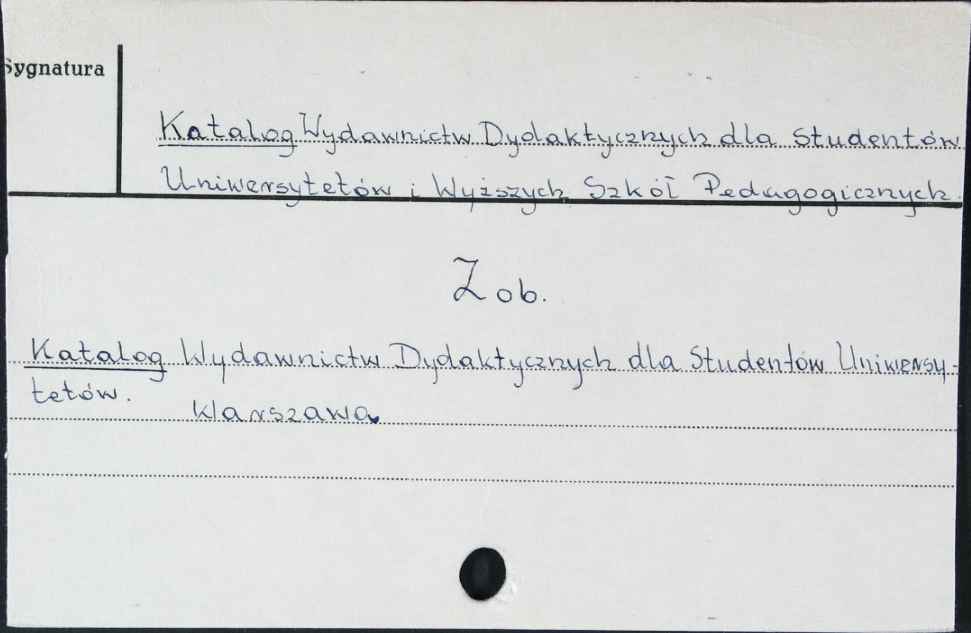 Sygnatura
Katalog Wydawnictw Dydaktycznych dla Studentów
Uniwersytetów i Wyższych Szkół Pedagogicznych.
Zob.
Katalog Wydawnictw Dydaktycznych dla Studentów Uniwersy-
tetów.
Warszawa.